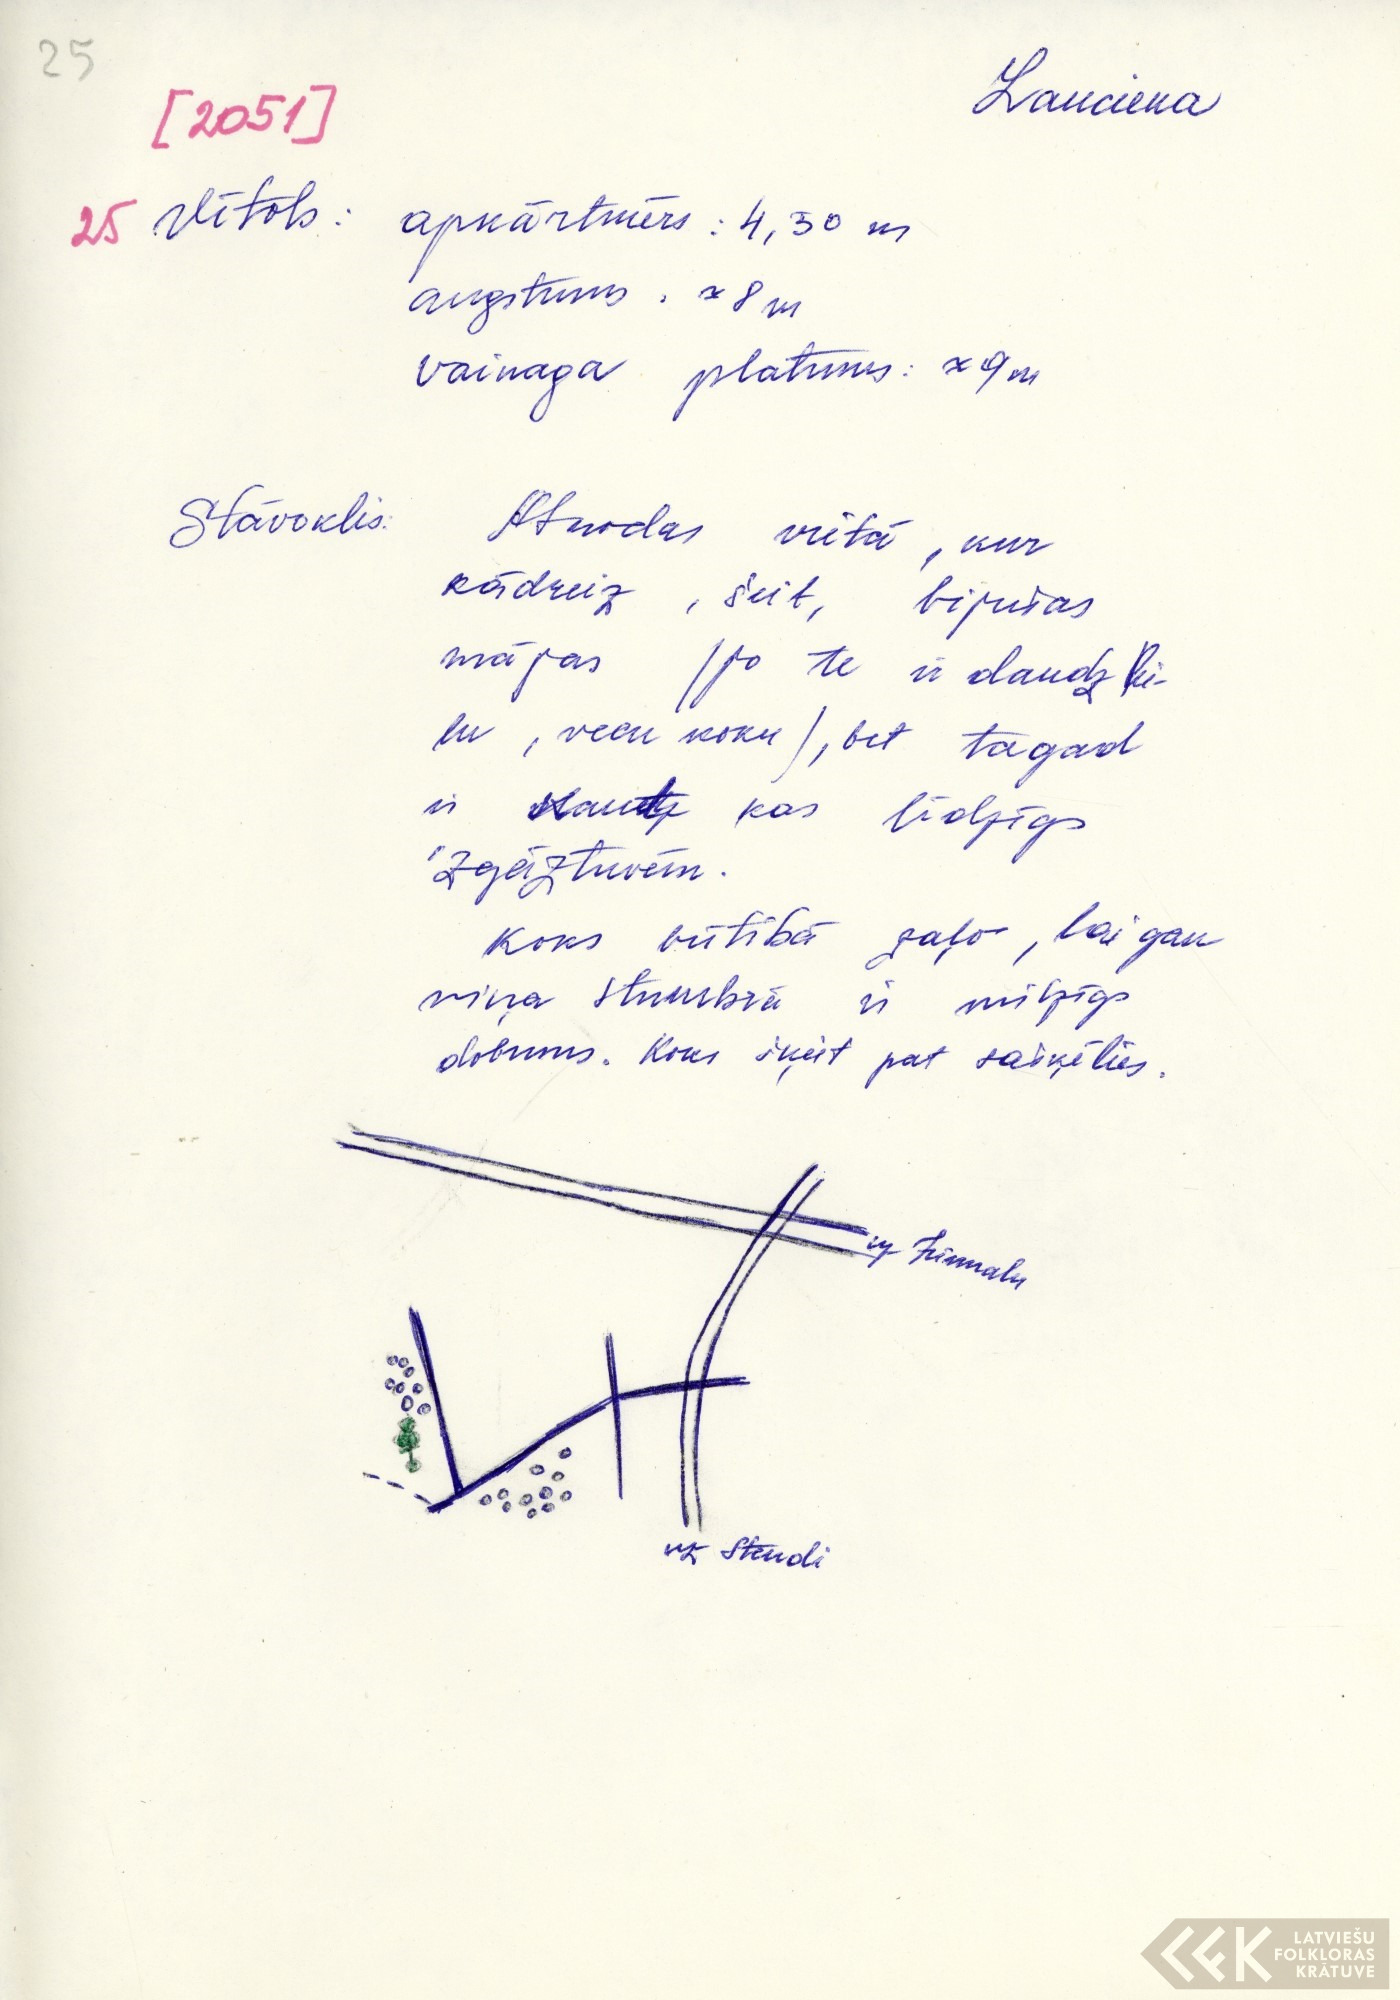 25
Lauciena
[2051]
25 Vītols: apkārtmērs: 4,30 m
augstums: ≈ 8 m
vainaga platums: ≈ 9 m
Stāvoklis: Atrodas vietā, kur
kādreiz, šeit, bijušas
mājas /jo te ir daudz lie-
lu, vecu koku/, bet tagad
ir kas līdzīgs
izgāztuvēm.
Koks būtībā zaļo, lai gan
viņa stumbrā ir milzīgs
dobums. Koks šķiet pat sašķēlies.
uz
uz Stendi
LATVIEŠU
FOLKLORAS
KRĀTUVE